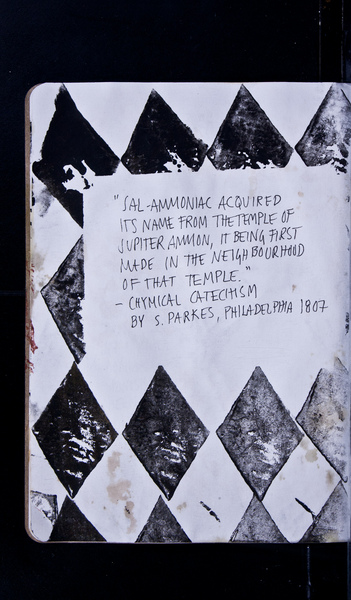 "SAL-AMMONIAC ACQUIRED
ITS NAME FROM THE TEMPLE OF
JUPITER AMMON, IT BEING FIRST
MADE IN THE NEIGHBOURHOOD
OF THAT TEMPLE."
- CHYMICAL CATECHISM
BY S. PARKES, PHILADELPHIA 1807